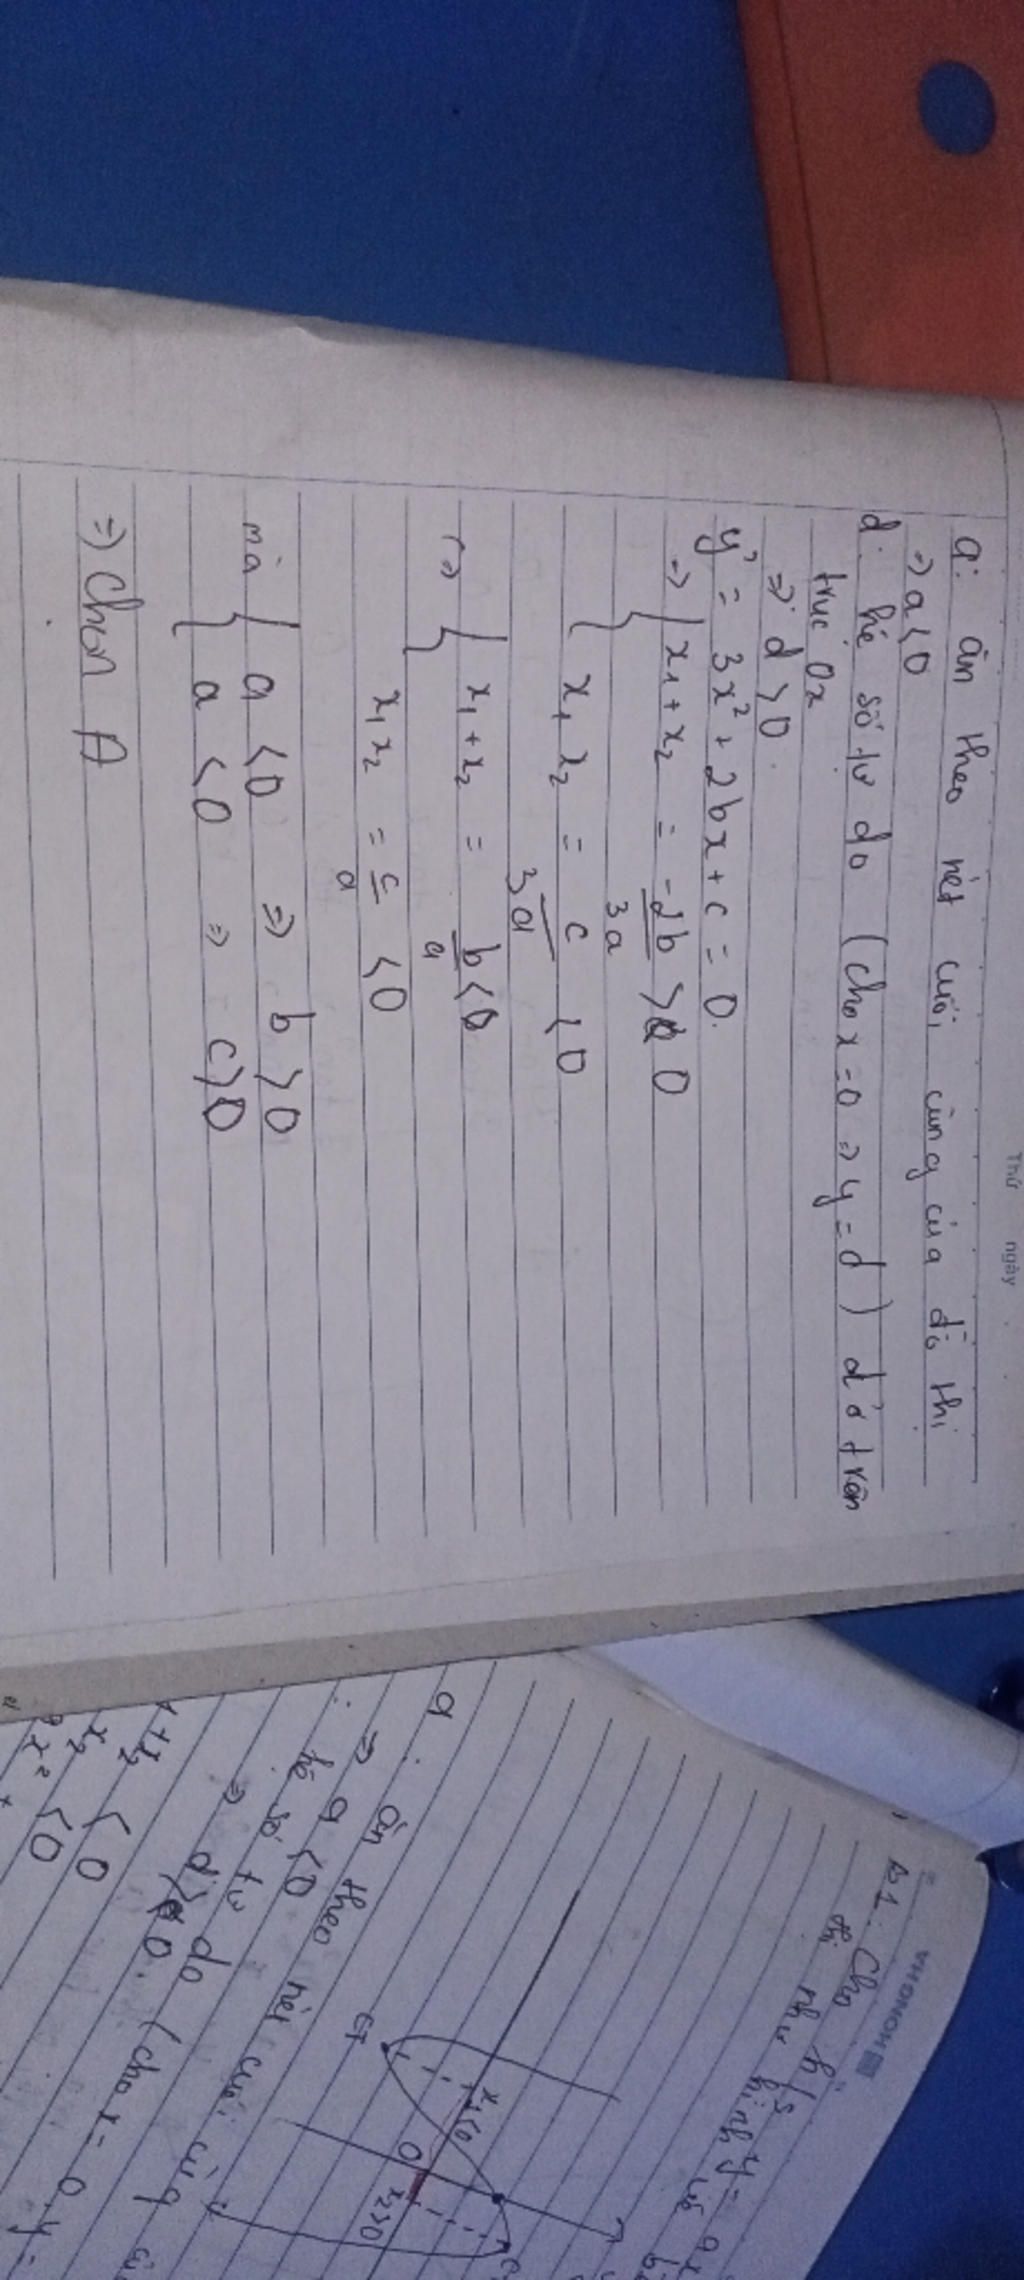 Thứ ngày
a: ăn theo nét cuối cùng của đồ thị
=> a<0
d: hệ số tự do (cho x=0 => y=d) d ở trên
trục Ox
=> d>0.
y' = 3x² + 2bx + c = 0.
=> { x₁+x₂ = -2b/3a > 0
x₁x₂ = c/3a < 0
(=> { x₁+x₂ = b/a < 0
x₁x₂ = c/a < 0
mà { a<0 => b>0
a<0 => c>0
=> Chọn A
HONG HA
B1: Cho h/s y = ax
thị như hình vẽ
CT
x₁<0
O
x₂>0
a: ăn theo nét cuối cùng
=> a<0
: hệ số tự do (cho x=0 y=
=> d>0.
+x₂ < 0
x₂ < 0
3x² +